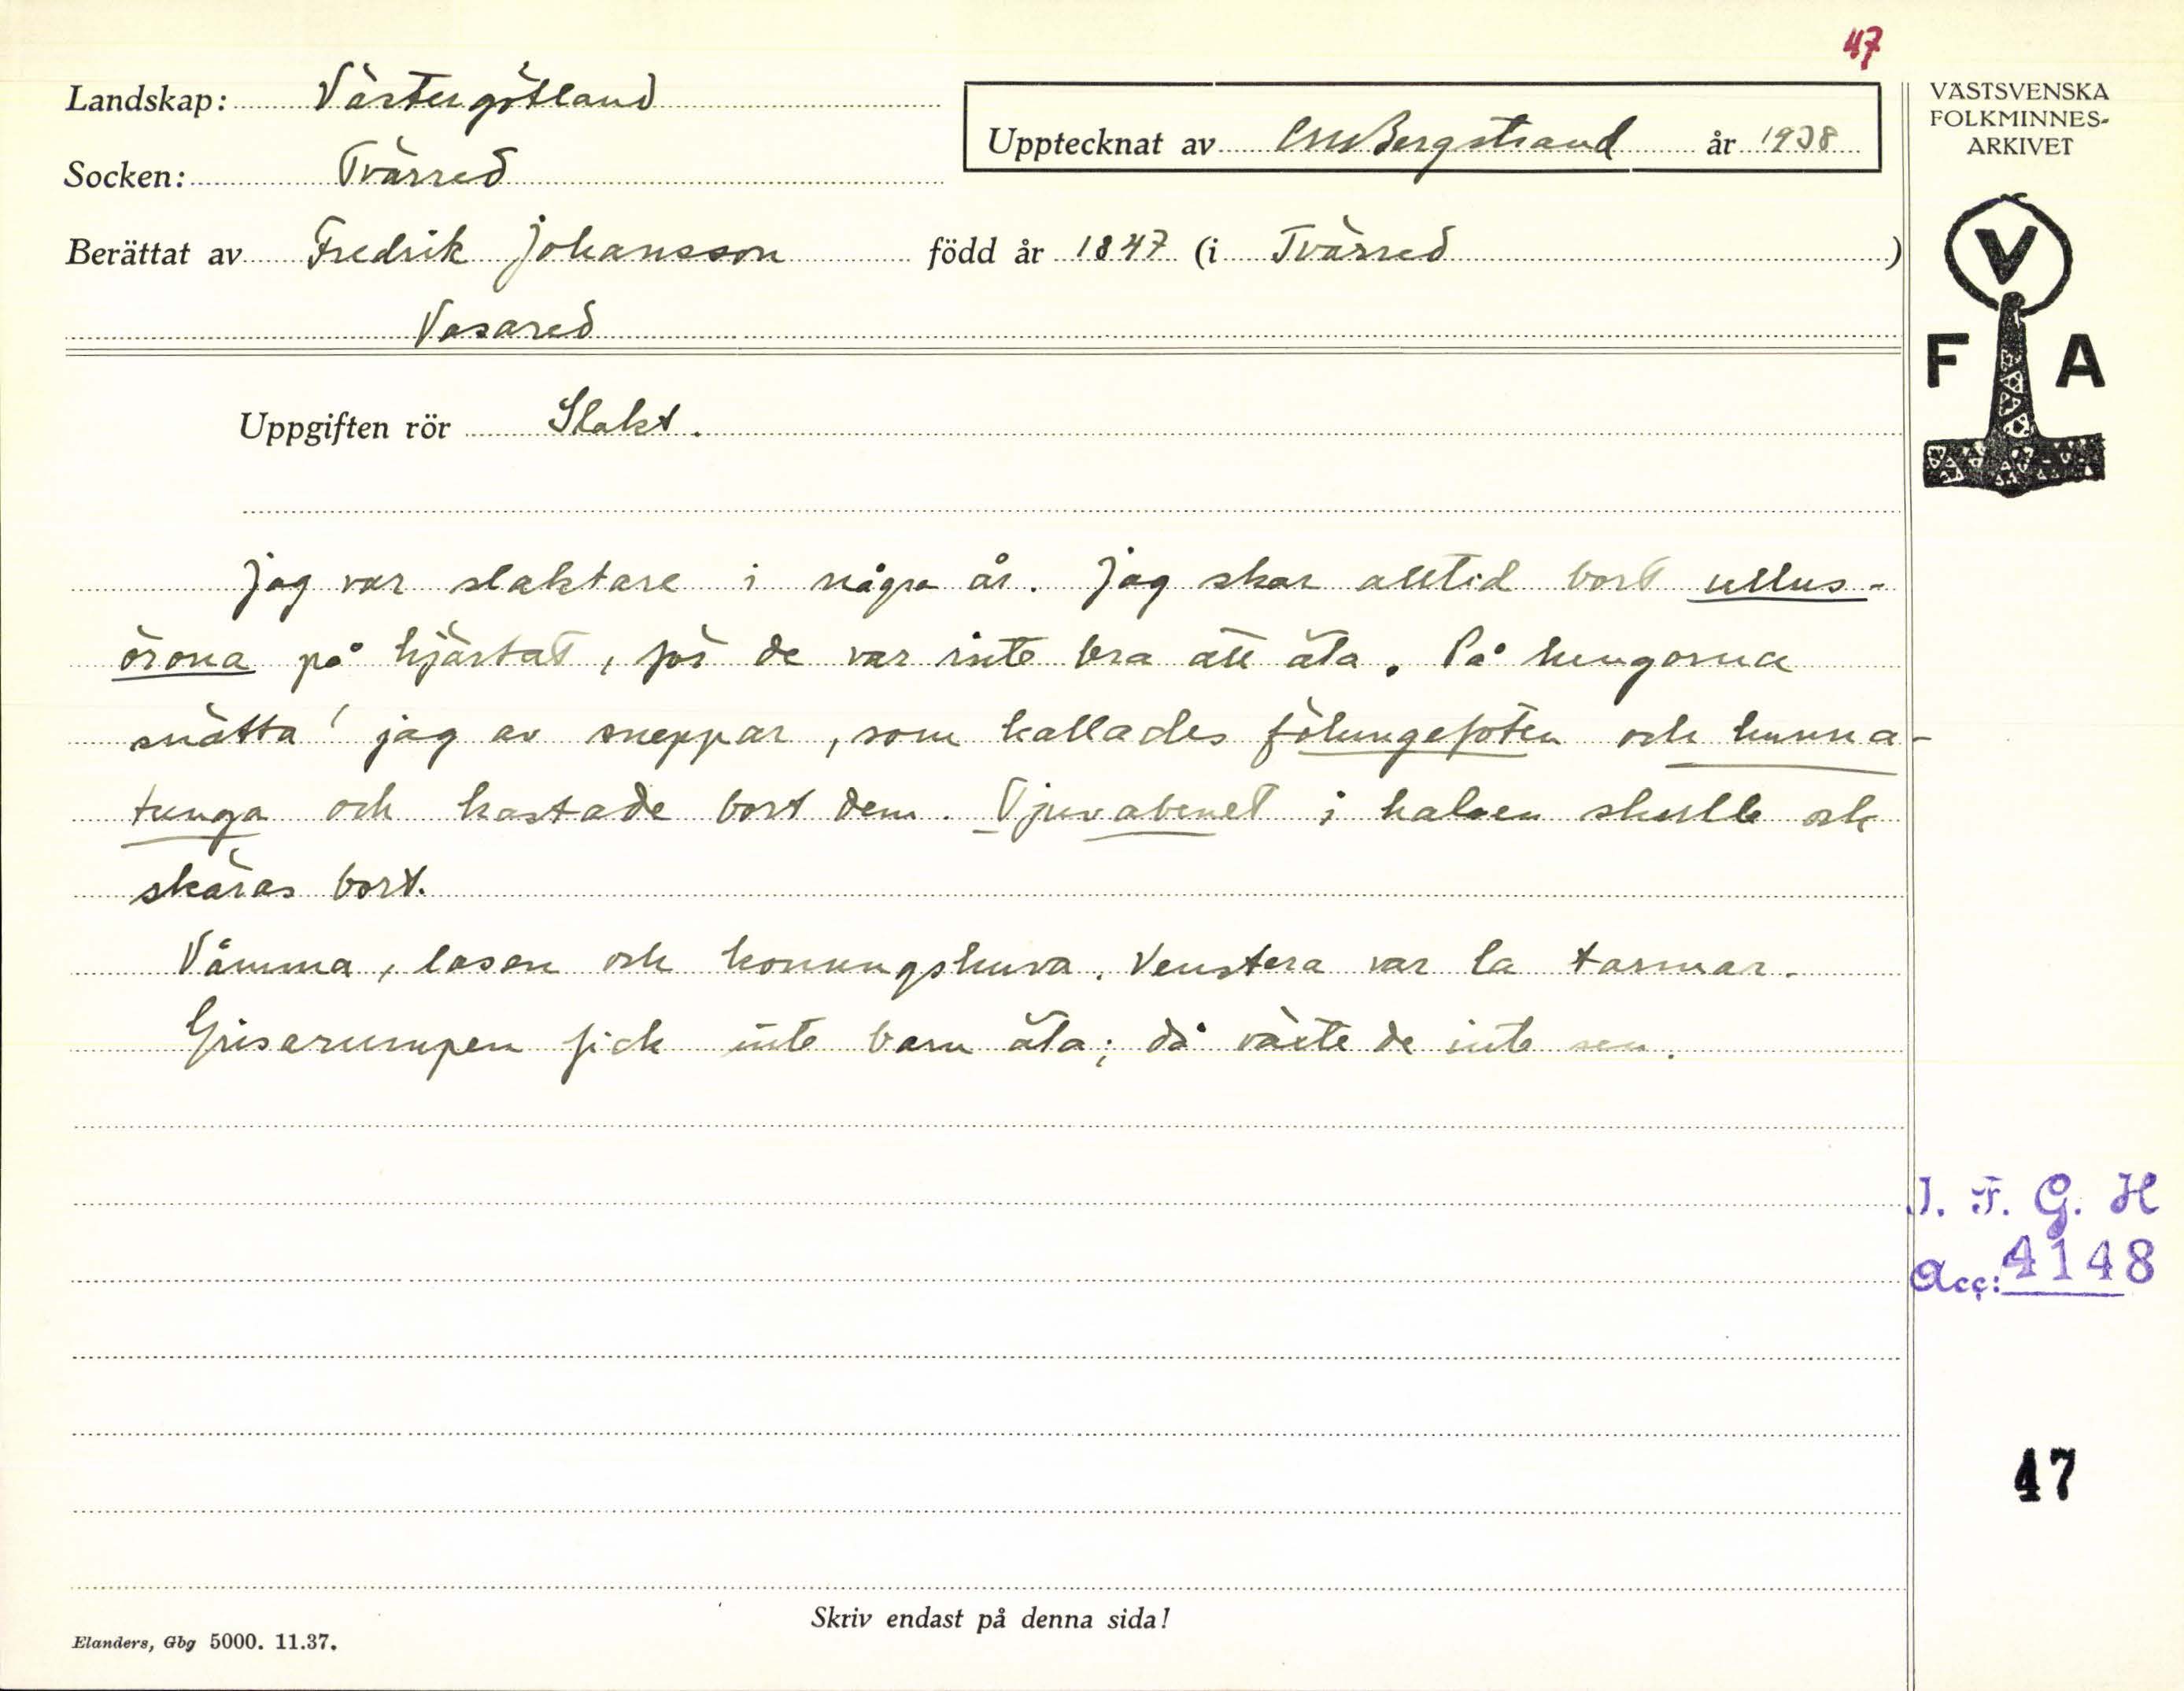 47
Landskap: Västergötland
Socken: Tvärred
Upptecknat av CM Bergstrand år 1938
Berättat av Fredrik Johansson född år 1847 (i Tvärred)
Vasared
VÄSTSVENSKA
FOLKMINNES-
ARKIVET
V
F A
Uppgiften rör Slakt.
Jag var slaktare i några år. Jag skar alltid bort ullus-
örona på hjärtat, för de var inte bra att äta. På lungorna
snätta' jag av sneppar, som kallades fölungefoten och hunna-
tunga och kastade bort dem. Tjuvabenet i halsen skulle och
skäras bort.
Våmma, lasen och konungshuva. Venstera var la tarmar.
Grisarumpen fick inte barn äta; då växte de inte sen.
I. F. G. H
Acc: 4148
47
Skriv endast på denna sida!
Elanders, Gbg 5000. 11.37.